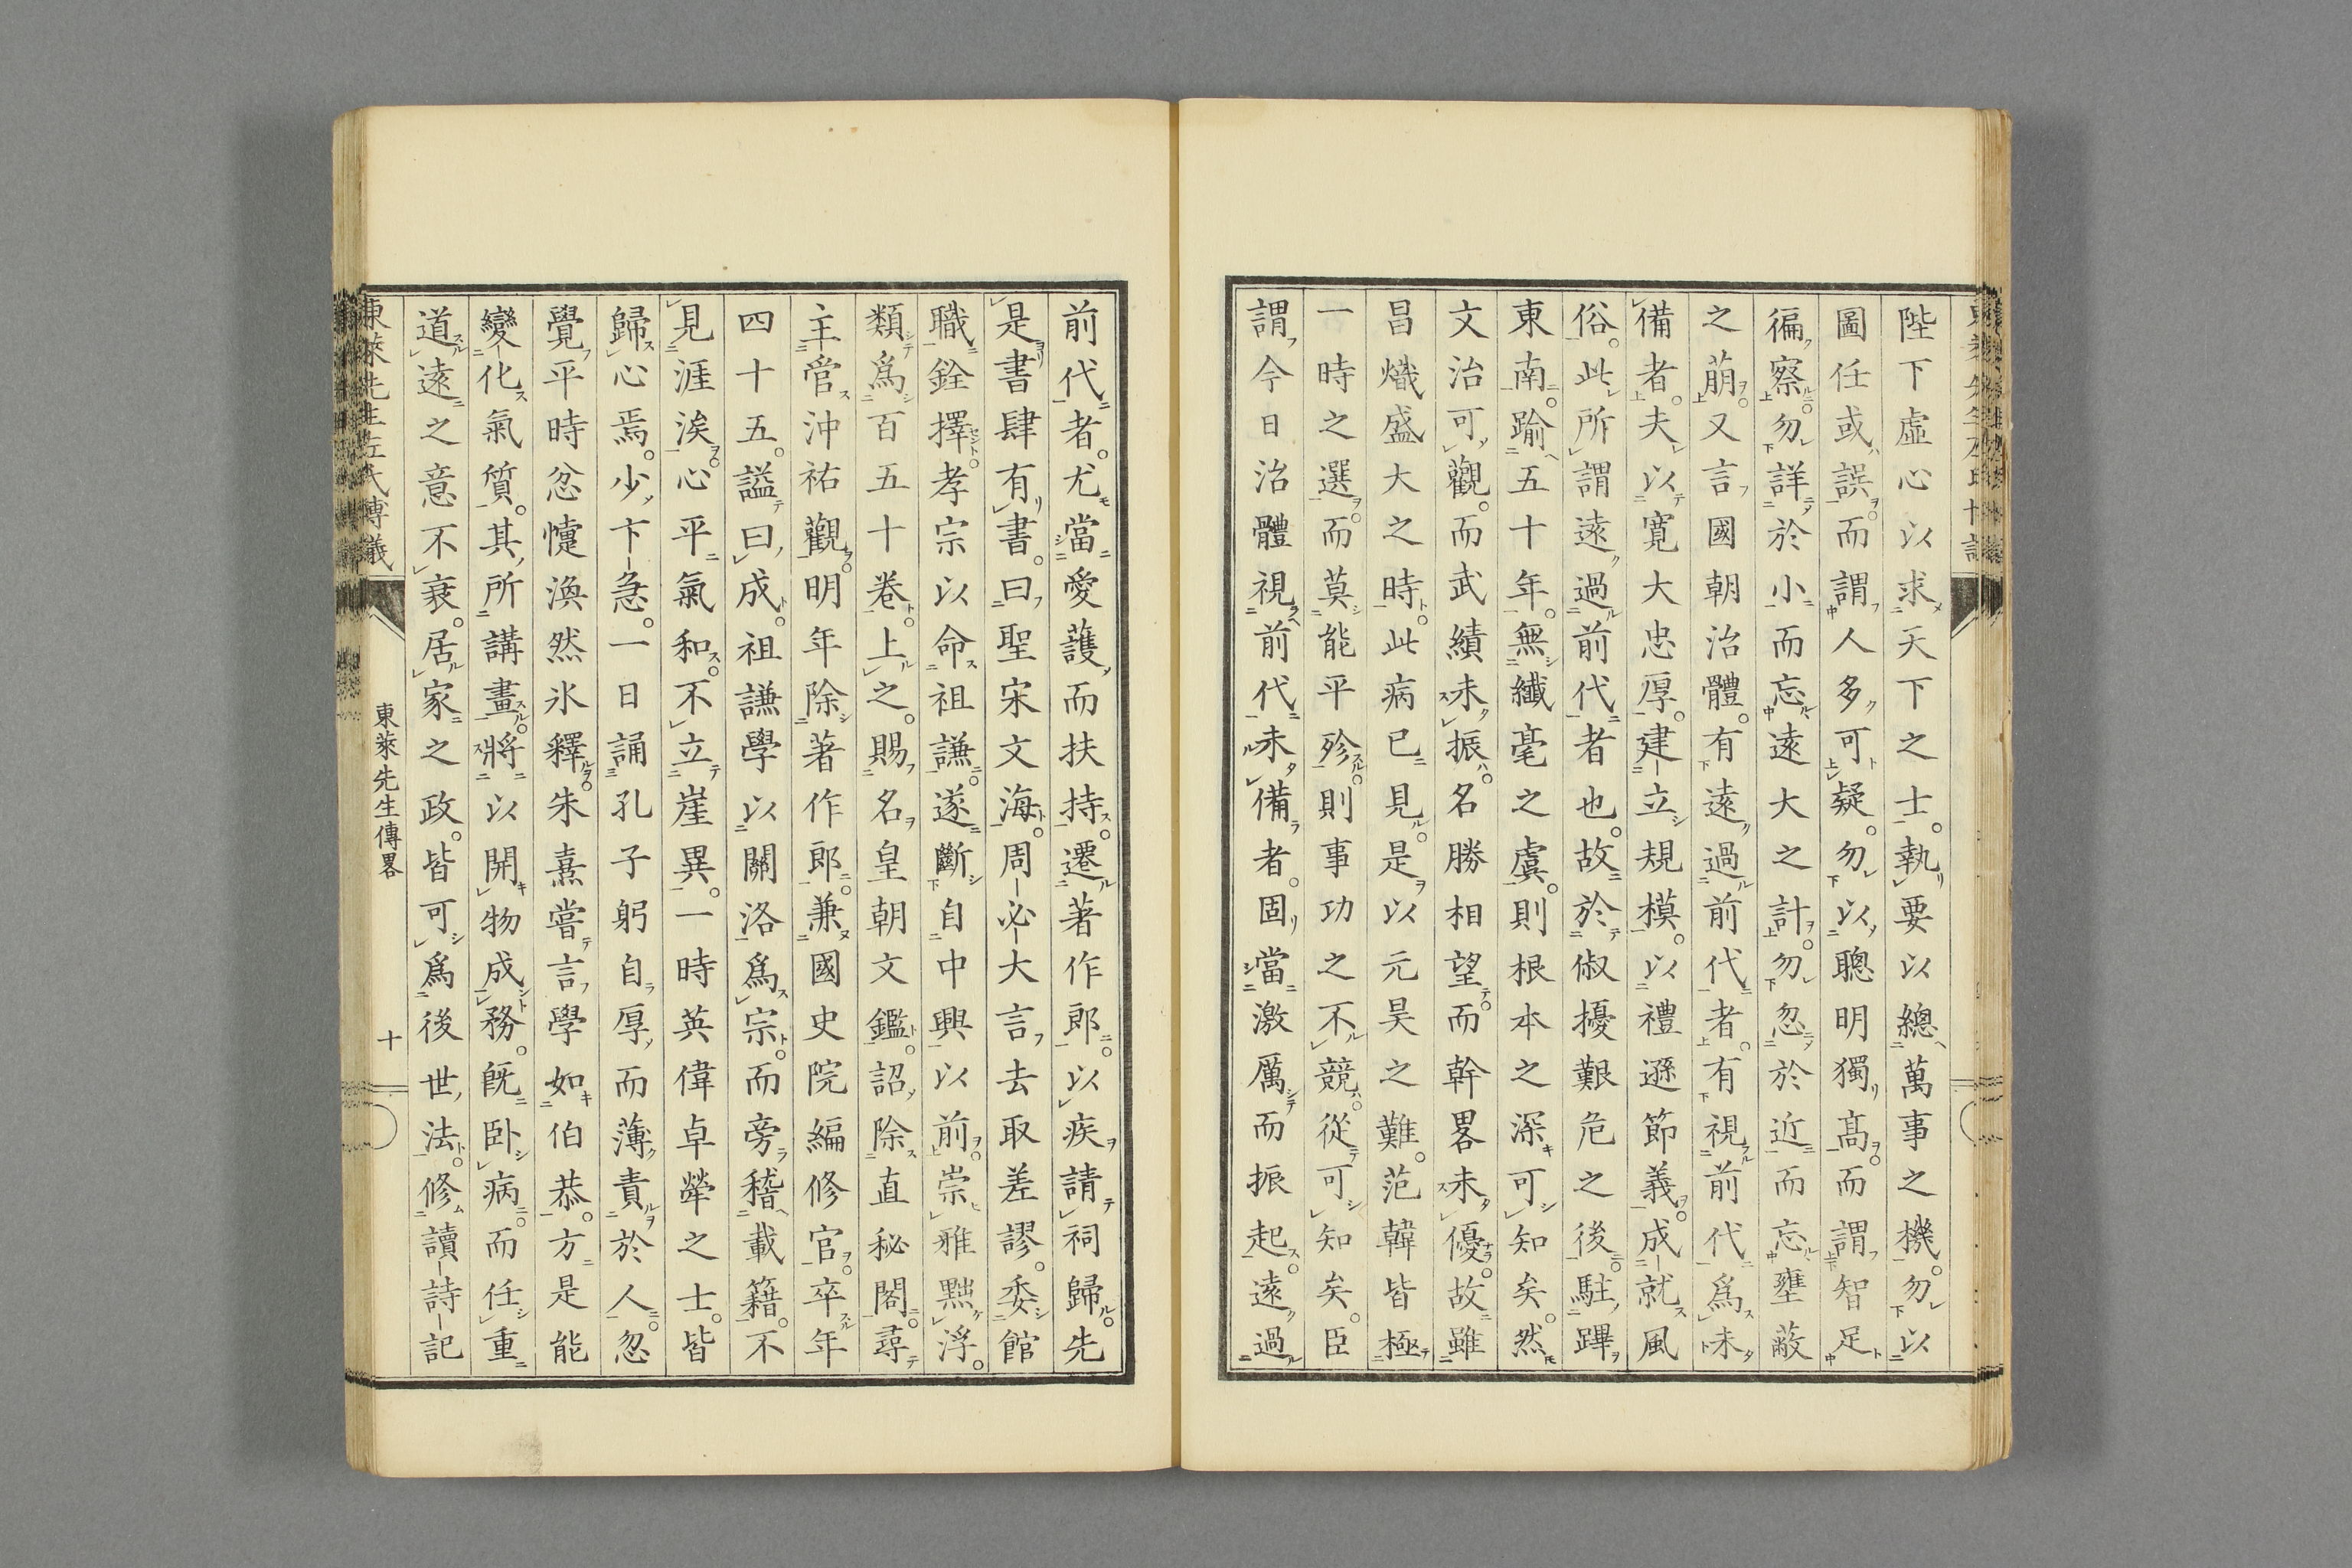 陛下虛心以求天下之士。執要以總萬事之機。勿以
圖任或誤。而謂人多可疑。勿以聰明獨髙。而謂智足
徧察。勿詳於小而忘遠大之計。勿忽於近而忘壅蔽
之萠。又言國朝治體。有遠過前代者。有視前代爲未
備者。夫以寛大忠厚。建立規模。以禮遜節義。成就風
俗。此所謂遠過前代者也。故於俶擾艱危之後。駐蹕
東南。踰五十年。無纎毫之虞。則根本之深可知矣。然
文治可觀。而武績未振。名勝相望。而幹畧未優。故雖
昌熾盛大之時。此病已見。是以元昊之難。范韓皆極
一時之選。而莫能平殄。則事功之不競。從可知矣。臣
謂今日治體視前代未備者。固當激厲而振起。遠過
前代者。尤當愛䕶而扶持。遷著作郎。以疾請祠歸。先
是書肆有書。曰聖宋文海。周必大言去取差謬。委館
職銓擇。孝宗以命祖謙。遂斷自中興以前。崇雅黜浮。
類爲百五十卷。上之。賜名皇朝文鑑。詔除直秘閣。尋
主管沖祐觀。明年除著作郎。兼國史院編修官。卒年
四十五。謚曰成。祖謙學以關洛爲宗。而旁稽載籍。不
見涯涘。心平氣和。不立崖異。一時英偉卓犖之士。皆
歸心焉。少卞急。一日誦孔子躬自厚而薄責於人。忽
覺平時忿懥渙然氷釋。朱熹嘗言學如伯恭。方是能
變化氣質。其所講畫。將以開物成務。旣卧病。而任重
道遠之意不衰。居家之政。皆可爲後世法。修讀詩記
東萊先生左氏博議
東萊先生傳畧
十